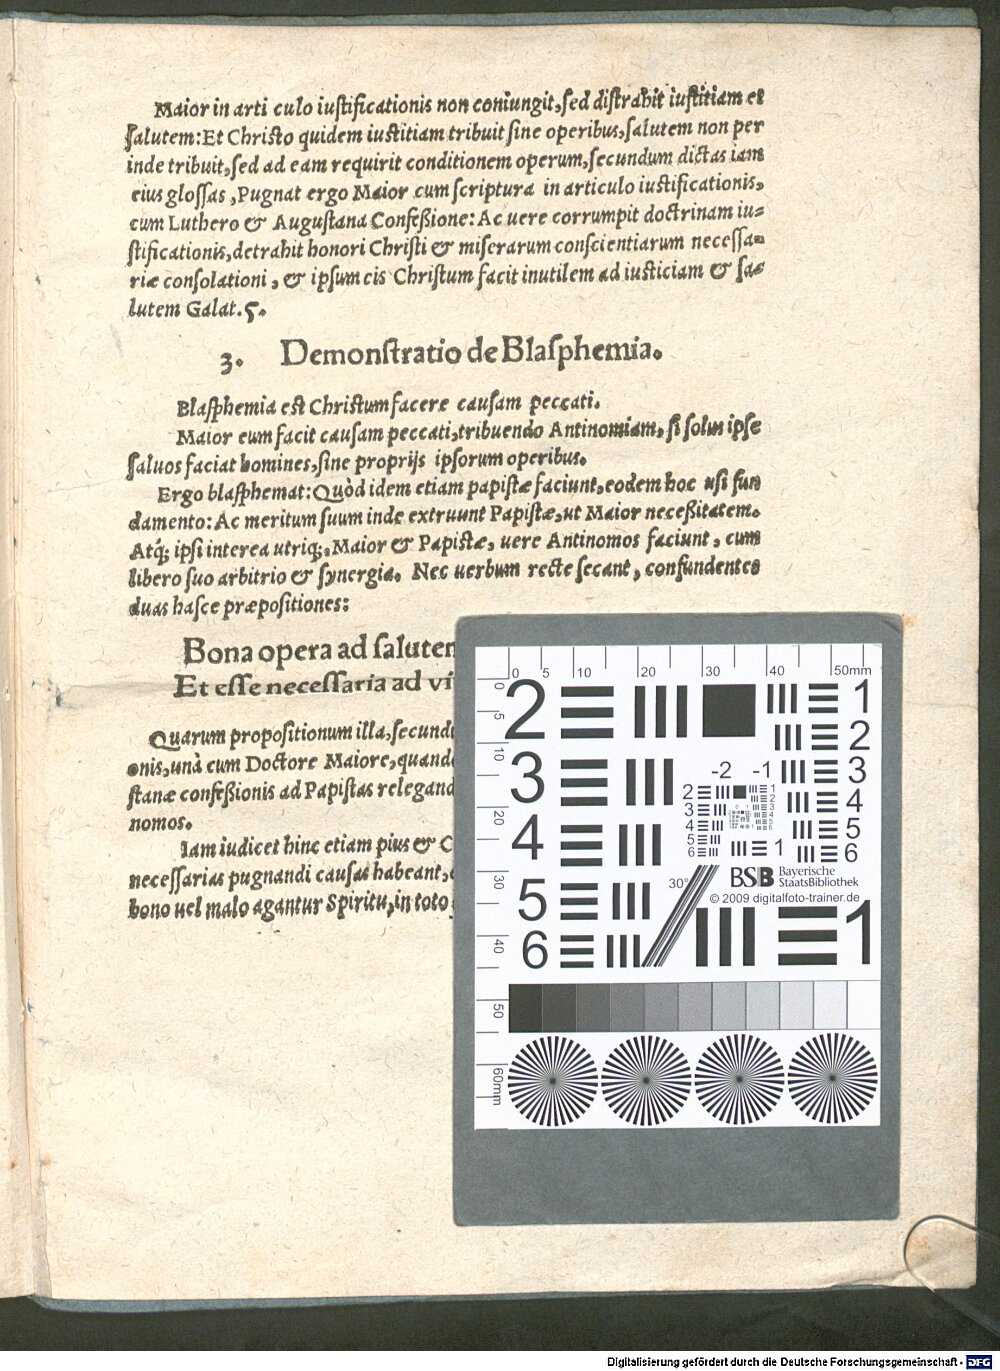 Maior in arti culo iuſtificationis non coniungit, ſed diſtrahit iuſtitiam et
ſalutem: Et Chriſto quidem iuſtitiam tribuit ſine operibus, ſalutem non per
inde tribuit, ſed ad eam requirit conditionem operum, ſecundum dictas iam
eius gloſſas, Pugnat ergo Maior cum ſcriptura in articulo iuſtificationis,
cum Luthero & Auguſtana Confeßione: Ac uere corrumpit doctrinam iu=
ſtificationis, detrahit honori Chriſti & miſerarum conſcientiarum neceſſa=
riæ conſolationi, & ipſum eis Chriſtum facit inutilem ad iuſticiam & ſa=
lutem Galat. 5.
3. Demonſtratio de Blaſphemia.
Blaſphemia eſt Chriſtum facere cauſam peccati.
Maior eum facit cauſam peccati, tribuendo Antinomiam, ſi ſolus ipſe
ſaluos faciat homines, ſine proprijs ipſorum operibus.
Ergo blaſphemat: Quòd idem etiam papiſtæ faciunt, eodem hoc uſi fun
damento: Ac meritum ſuum inde extruunt Papiſtæ, ut Maior neceßitatem.
Atq́; ipſi interea utriq;, Maior & Papiſtæ, uere Antinomos faciunt, cum
libero ſuo arbitrio & ſynergia. Nec uerbum recte ſecant, confundentes
duas haſce præpoſitiones:
Bona opera ad ſaluten
Et eſſe neceſſaria ad vi
Quarum propoſitionum illa, ſecund
onis, unà cum Doctore Maiore, quand
ſtanæ confeßionis ad Papiſtas relegand
nomos.
Iam iudicet hinc etiam pius & C
neceſſarias pugnandi cauſas habeant,
bono uel malo agantur Spiritu, in toto
0 5 10 20 30 40 50mm
0 5 10 20 30 40 50 60mm
2 3 4 5 6
1 2 3 4 5 6
-2 -1
2 3 4 5 6
1
30°
BSB Bayerische
StaatsBibliothek
© 2009 digitalfoto-trainer.de
1
Digitalisierung gefördert durch die Deutsche Forschungsgemeinschaft - DFG